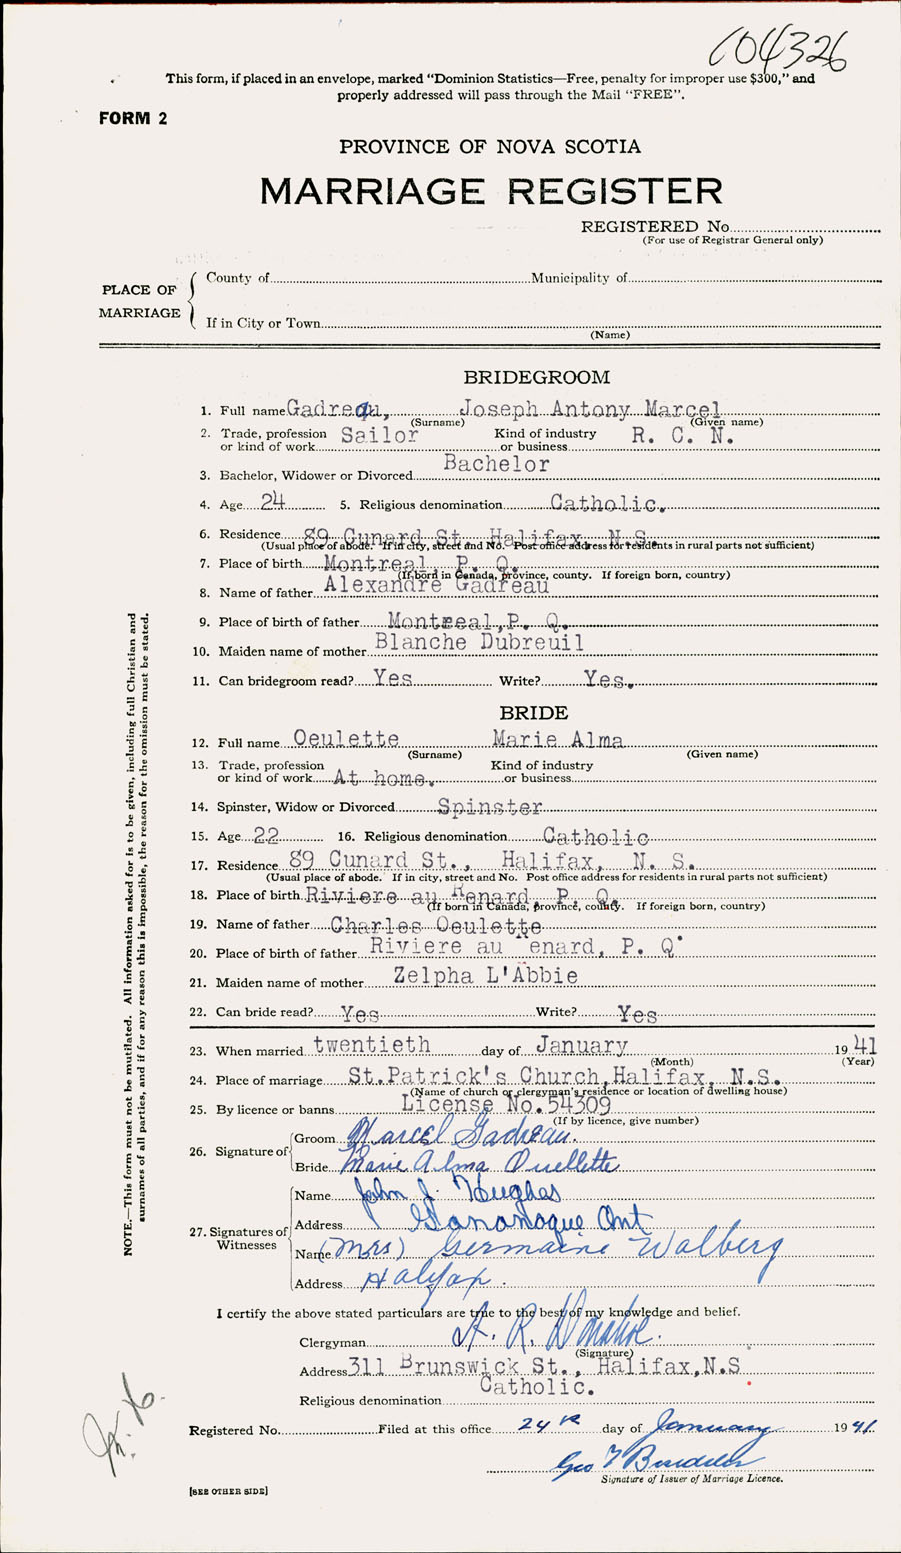 104326
This form, if placed in an envelope, marked "Dominion Statistics—Free, penalty for improper use $300," and
properly addressed will pass through the Mail "FREE".
FORM 2
PROVINCE OF NOVA SCOTIA
MARRIAGE REGISTER
REGISTERED No
(For use of Registrar General only)
PLACE OF MARRIAGE
County of Municipality of
If in City or Town
(Name)
BRIDEGROOM
1. Full name Gadreau, Joseph Antony Marcel
(Surname) (Given name)
2. Trade, profession or kind of work Sailor Kind of industry or business R. C. N.
3. Bachelor, Widower or Divorced Bachelor
4. Age 24 5. Religious denomination Catholic.
6. Residence 89 Cunard St. Halifax, N.S.
(Usual place of abode. If in city, street and No. Post office address for residents in rural parts not sufficient)
7. Place of birth Montreal, P. Q.
(If born in Canada, province, county. If foreign born, country)
8. Name of father Alexandre Gadreau
9. Place of birth of father Montreal, P. Q.
10. Maiden name of mother Blanche Dubreuil
11. Can bridegroom read? Yes Write? Yes.
BRIDE
12. Full name Oeulette Marie Alma
(Surname) (Given name)
13. Trade, profession or kind of work At home. Kind of industry or business
14. Spinster, Widow or Divorced Spinster
15. Age 22 16. Religious denomination Catholic
17. Residence 89 Cunard St., Halifax, N. S.
(Usual place of abode. If in city, street and No. Post office address for residents in rural parts not sufficient)
18. Place of birth Riviere au Renard, P. Q.
(If born in Canada, province, county. If foreign born, country)
19. Name of father Charles Oeulette
20. Place of birth of father Riviere au Renard, P. Q.
21. Maiden name of mother Zelpha L'Abbie
22. Can bride read? Yes Write? Yes
23. When married twentieth day of January 1941
(Month) (Year)
24. Place of marriage St.Patrick's Church, Halifax, N.S.
(Name of church or clergyman's residence or location of dwelling house)
25. By licence or banns License No. 54309
(If by licence, give number)
26. Signature of Groom Marcel Gadreau.
Bride Marie Alma Ouellette
27. Signatures of Witnesses
Name John J. Hughes
Address Gananoque Ont
Name (Mrs) Germaine Walberg
Address Halifax.
I certify the above stated particulars are true to the best of my knowledge and belief.
Clergyman A. R. Donahoe.
(Signature)
Address 311 Brunswick St., Halifax, N.S
Religious denomination Catholic.
Registered No. Filed at this office 24th day of January 1941
Geo
Signature of Issuer of Marriage Licence.
[SEE OTHER SIDE]
NOTE.—This form must not be mutilated. All information asked for is to be given, including full Christian and
surnames of all parties, and if for any reason this is impossible, the reason for the omission must be stated.